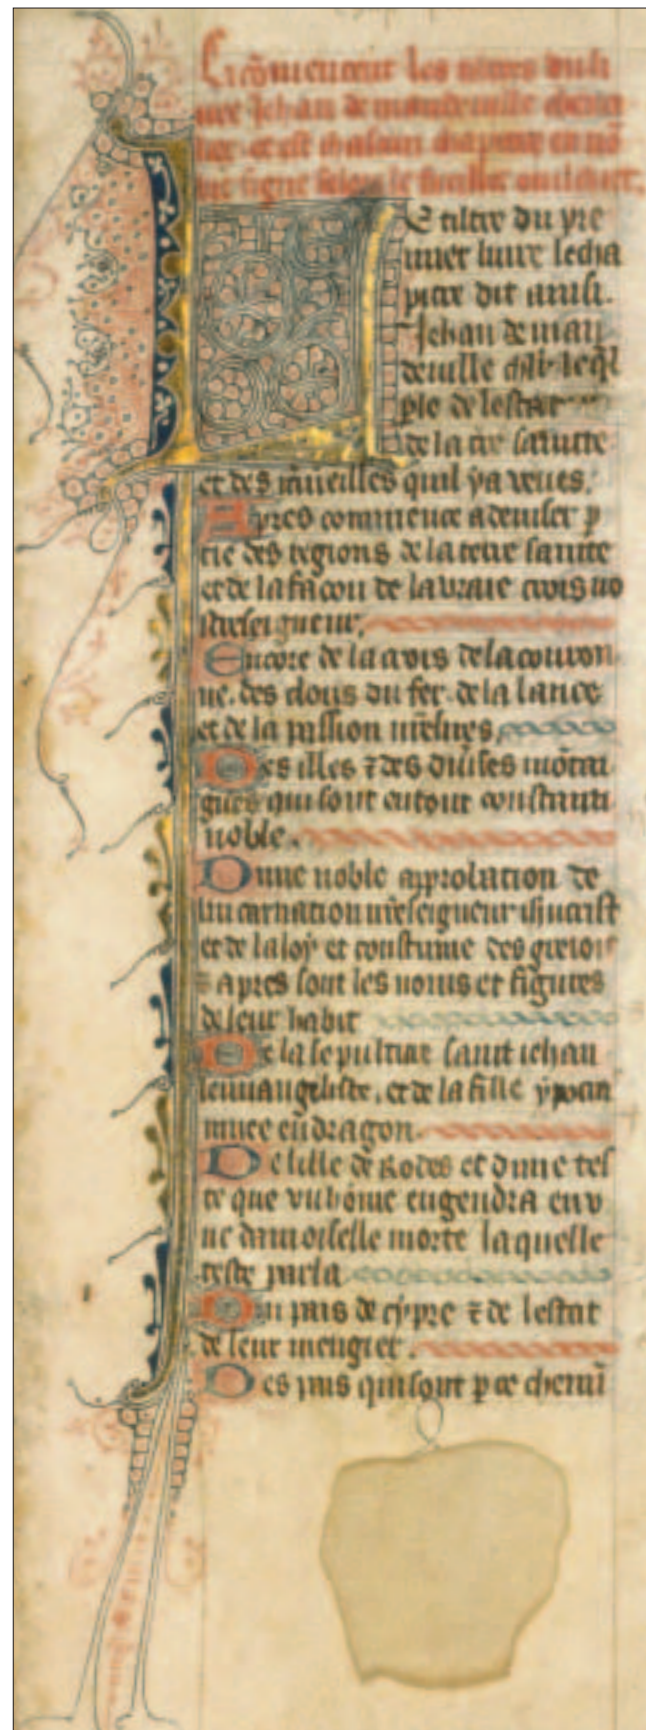 Ci cōmencent les titres du li
ure Jehan de mandeuille cheua
lier et est chascun chapitre en nō
bre signe selon le fueillet
Le tiltre du pre
mier liure le cha
pitre dit ainsi.
Jehan de man
deuille
ple de lestat
de la tr̄e sainte
et des m̄ueilles quil y a veues.
Apres commence a deuiser p
tie des regions de la terre sainte
et de la facon de la vraie crois no
stre seigneur.
Encore de la crois de la couron
ne. des clous du fer. de la lance
et de la passion meismes.
Des illes ⁊ des diuises mōtai
gnes qui sont entour constanti
noble.
Dune noble approbation de
lincarnation nr̄e seigneur ihūcrist
et de la loy et coustume des gregois
⁊ apres sont les noms et figures
de leur habit
De la sepulture saint iehan
leuuangeliste. et de la fille ypocr
muee en dragon.
De lille de Rodes et dune tes
te que vn home engendra en v
ne damoiselle morte laquelle
teste parla
Du pais de cypre ⁊ de lestat
de leur mengier.
Des pais qui sont p ce chemī